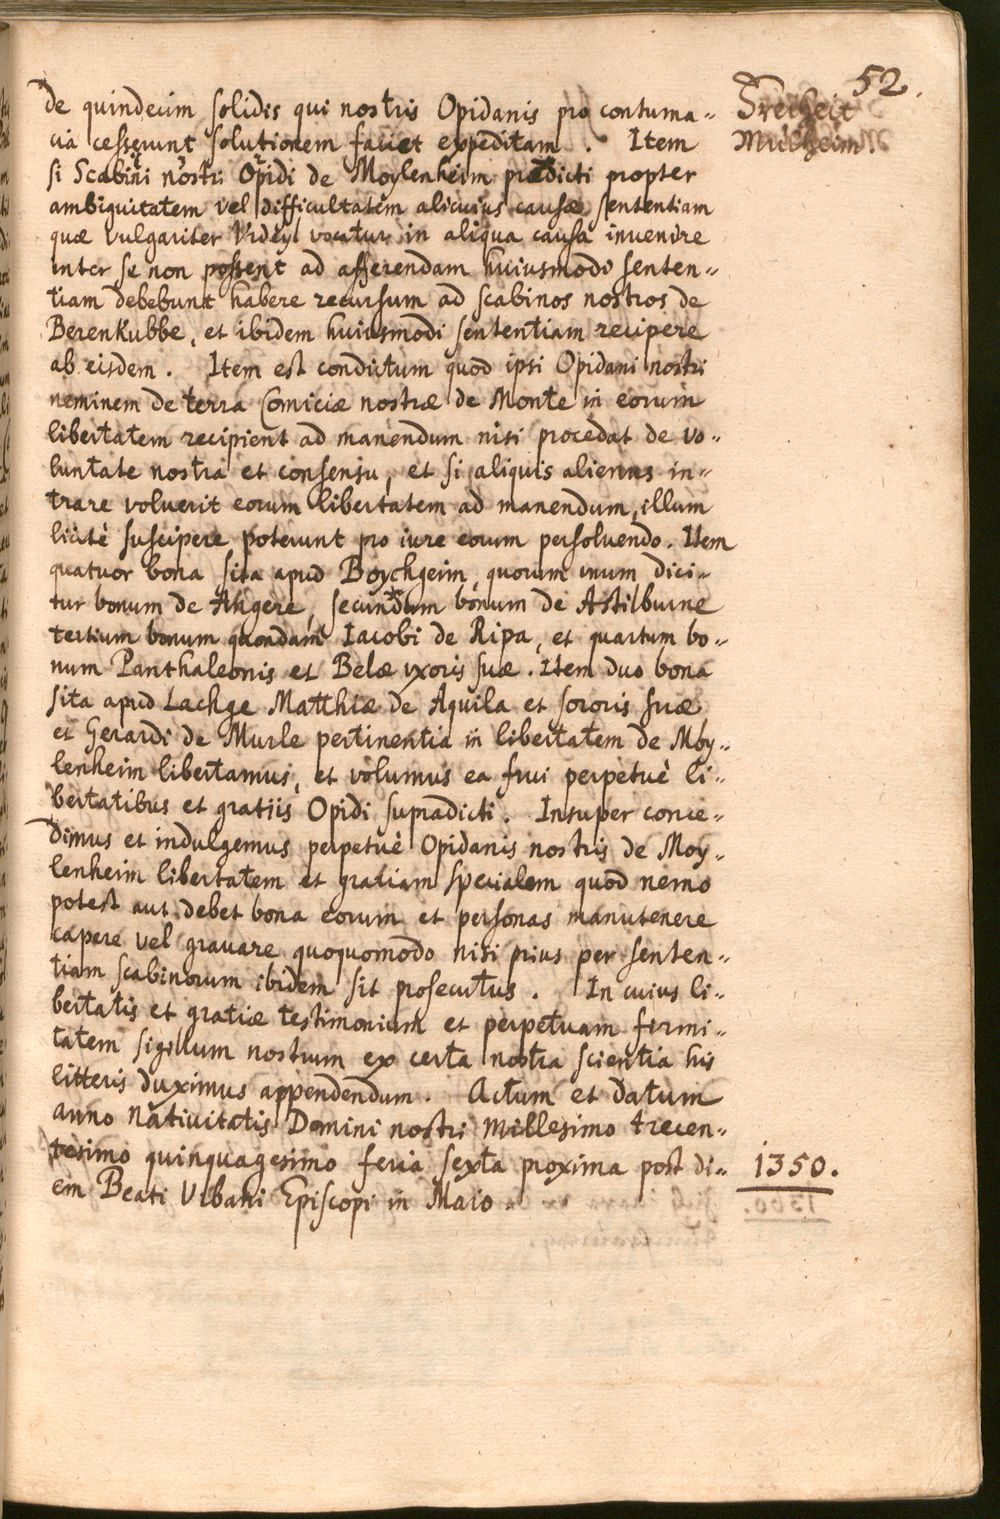 52.
Freiheit
Mülheim.
de quindecim solidis qui nostris Opidanis pro contuma-
cia cesserunt solutionem faciet expeditam. Item
si Scabini nostri Opidi de Moylenheim prædicti propter
ambiguitatem vel difficultatem alicuius causæ sententiam
quæ vulgariter Vrdeyl vocatur in aliqua causa invenire
inter se non possent ad asserendam huiusmodi senten-
tiam debebunt habere recursum ad scabinos nostros de
Berenkubbe, et ibidem huiusmodi sententiam recipere
ab eisdem. Item est condictum quod ipsi Opidani nostri
neminem de terra Comiciæ nostræ de Monte in eorum
libertatem recipient ad manendum nisi procedat de vo-
luntate nostra et consensu, et si aliquis alienus in-
trare voluerit eorum libertatem ad manendum, illum
licitè suscipere poterunt pro iure eorum persolvendo. Item
quatuor bona sita apud Boychgeim, quorum unum dici-
tur bonum de Angere, secundum bonum de Astilburne
tertium bonum quondam Iacobi de Ripa, et quartum bo-
num Panthaleonis et Belæ vxoris suæ. Item duo bona
sita apud Lachge Matthiæ de Aquila et sororis suæ
et Gerardi de Murle pertinentia in libertatem de Moy-
lenheim libertamus, et volumus ea frui perpetuè li-
bertatibus et gratiis Opidi supradicti. Insuper conce-
dimus et indulgemus perpetuè Opidanis nostris de Moy-
lenheim libertatem et gratiam specialem quod nemo
potest aut debet bona eorum et personas manutenere
capere vel gravare quoquomodo nisi prius per senten-
tiam scabinorum ibidem sit prosecutus. In cuius li-
bertatis et gratiæ testimonium et perpetuam firmi-
tatem sigillum nostrum ex certa nostra scientia his
litteris duximus appendendum. Actum et datum
anno Nativitatis Domini nostri Millesimo trecen-
tesimo quinquagesimo feria sexta proxima post di-
em Beati Vrbani Episcopi in Maio.
1350.